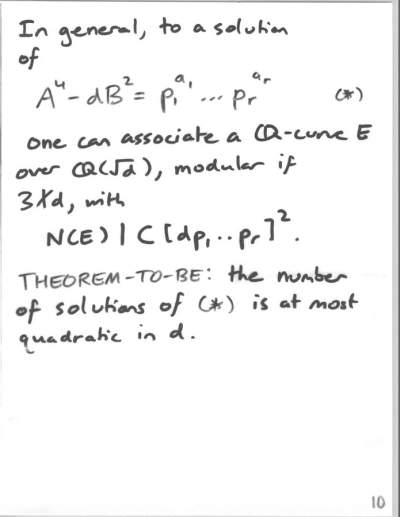 In general, to a solution
of
A⁴ - dB² = p₁^a₁ ... pᵣ^aᵣ (*)
one can associate a Q-curve E
over Q(√d), modular if
3∤d, with
N(E) | C [dp₁..pᵣ]².
THEOREM-TO-BE: the number
of solutions of (*) is at most
quadratic in d.
10